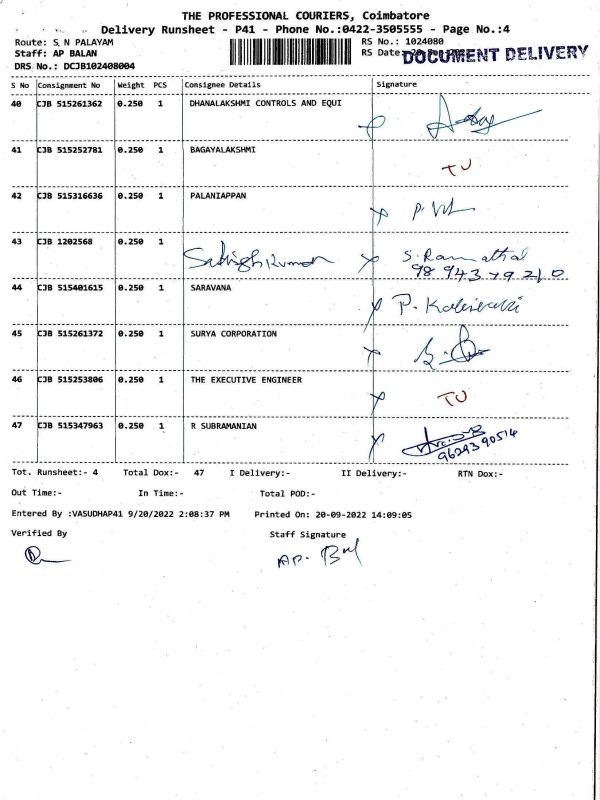 THE PROFESSIONAL COURIERS, Coimbatore
Delivery Runsheet - P41 - Phone No.:0422-3505555 - Page No.:4
Route: S N PALAYAM
RS No.: 1024080
Staff: AP BALAN
RS Date:
DOCUMENT DELIVERY
DRS No.: DCJB102408004
S No Consignment No Weight PCS Consignee Details Signature
40 CJB 515261362 0.250 1 DHANALAKSHMI CONTROLS AND EQUI
41 CJB 515252781 0.250 1 BAGAYALAKSHMI
TU
42 CJB 515316636 0.250 1 PALANIAPPAN
43 CJB 1202568 0.250 1
Sathishkumar S. Ramathal
98 943 79 210
44 CJB 515401615 0.250 1 SARAVANA
45 CJB 515261372 0.250 1 SURYA CORPORATION
46 CJB 515253806 0.250 1 THE EXECUTIVE ENGINEER
TU
47 CJB 515347963 0.250 1 R SUBRAMANIAN
9629390514
Tot. Runsheet:- 4 Total Dox:- 47 I Delivery:- II Delivery:- RTN Dox:-
Out Time:- In Time:- Total POD:-
Entered By :VASUDHAP41 9/20/2022 2:08:37 PM Printed On: 20-09-2022 14:09:05
Verified By Staff Signature
AP.